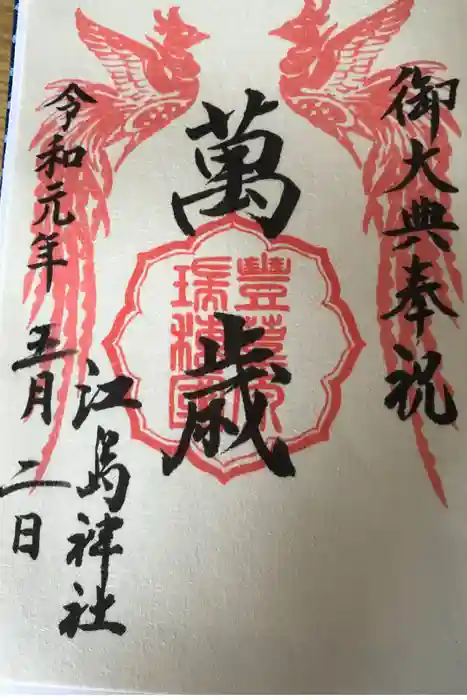 御大典奉祝
萬歳
豐葦原
瑞穂國
江島神社
令和元年五月二日